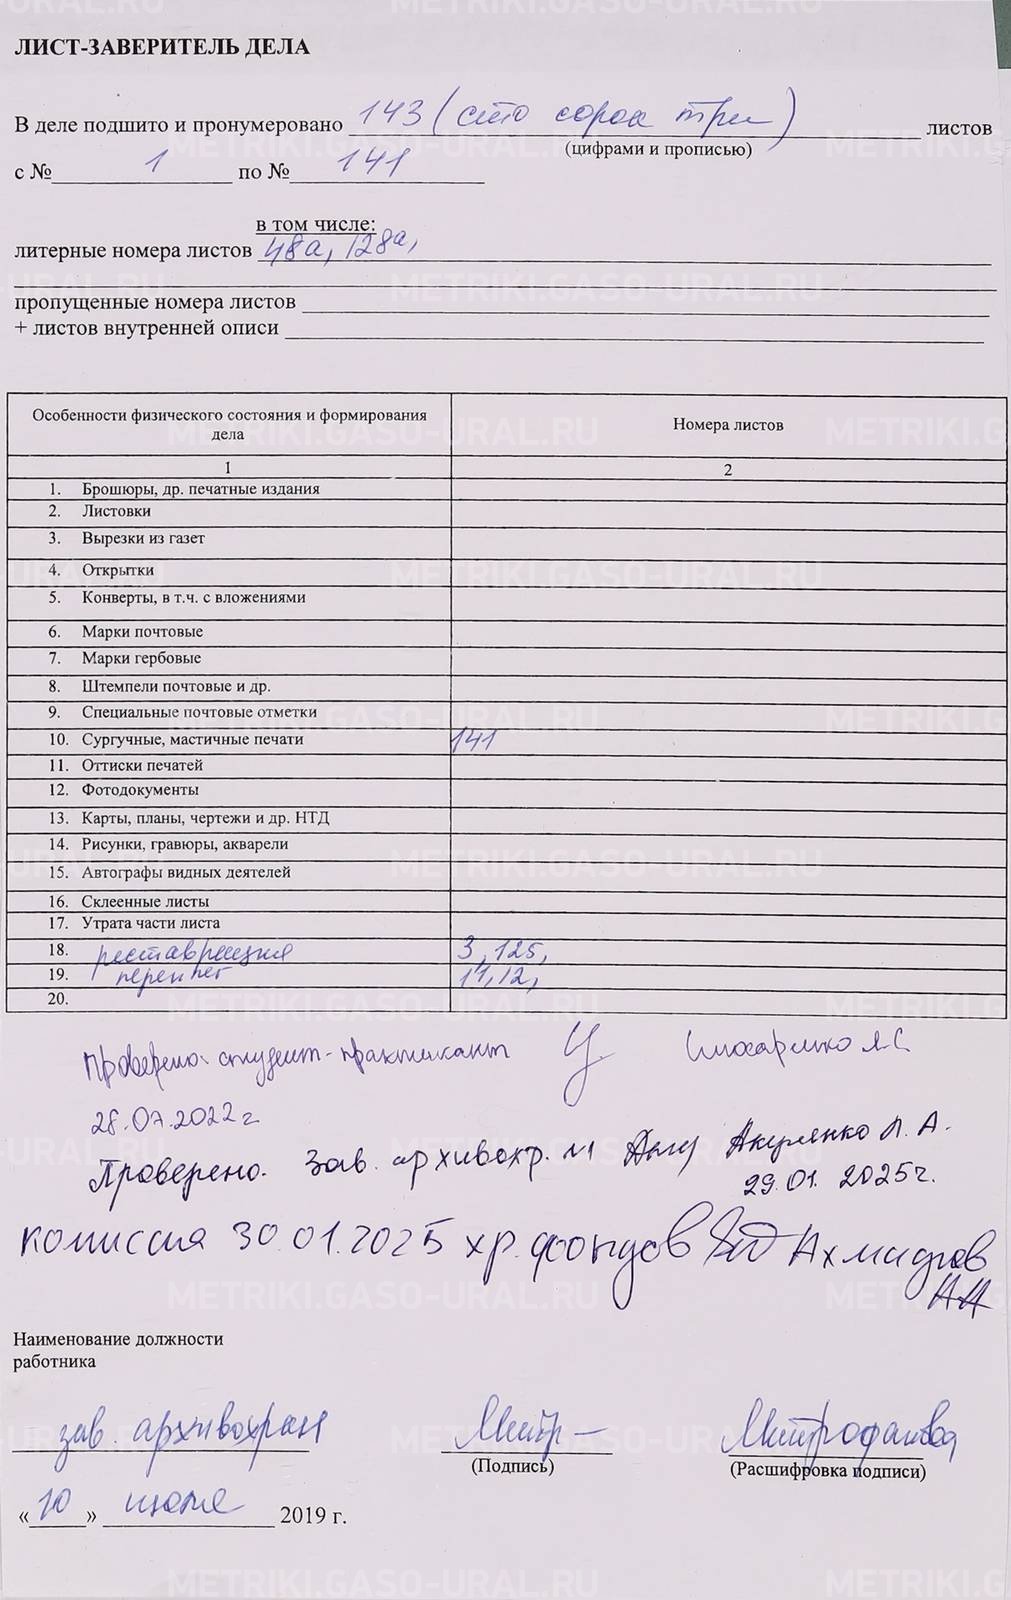 ЛИСТ-ЗАВЕРИТЕЛЬ ДЕЛА
В деле подшито и пронумеровано 143 (сто сорок три) листов
(цифрами и прописью)
с № 1 по № 141
в том числе:
литерные номера листов 48а, 128а,
пропущенные номера листов
+ листов внутренней описи
Особенности физического состояния и формирования дела
Номера листов
1 2
1. Брошюры, др. печатные издания
2. Листовки
3. Вырезки из газет
4. Открытки
5. Конверты, в т.ч. с вложениями
6. Марки почтовые
7. Марки гербовые
8. Штемпели почтовые и др.
9. Специальные почтовые отметки
10. Сургучные, мастичные печати 141
11. Оттиски печатей
12. Фотодокументы
13. Карты, планы, чертежи и др. НТД
14. Рисунки, гравюры, акварели
15. Автографы видных деятелей
16. Склеенные листы
17. Утрата части листа
18. реставрация 3, 125,
19. переплет 11, 12,
20.
Проверено студент-практикант
28.07.2022 г
Проверено. Зав. архивохр. Акуленко Л. А.
29.01. 2025г.
комиссия 30.01.2025 хр. фондов
Наименование должности
работника
зав. архивохран Митр- Митрофанова
(Подпись) (Расшифровка подписи)
«10» июля 2019 г.
METRIKI.GASO-URAL.RU